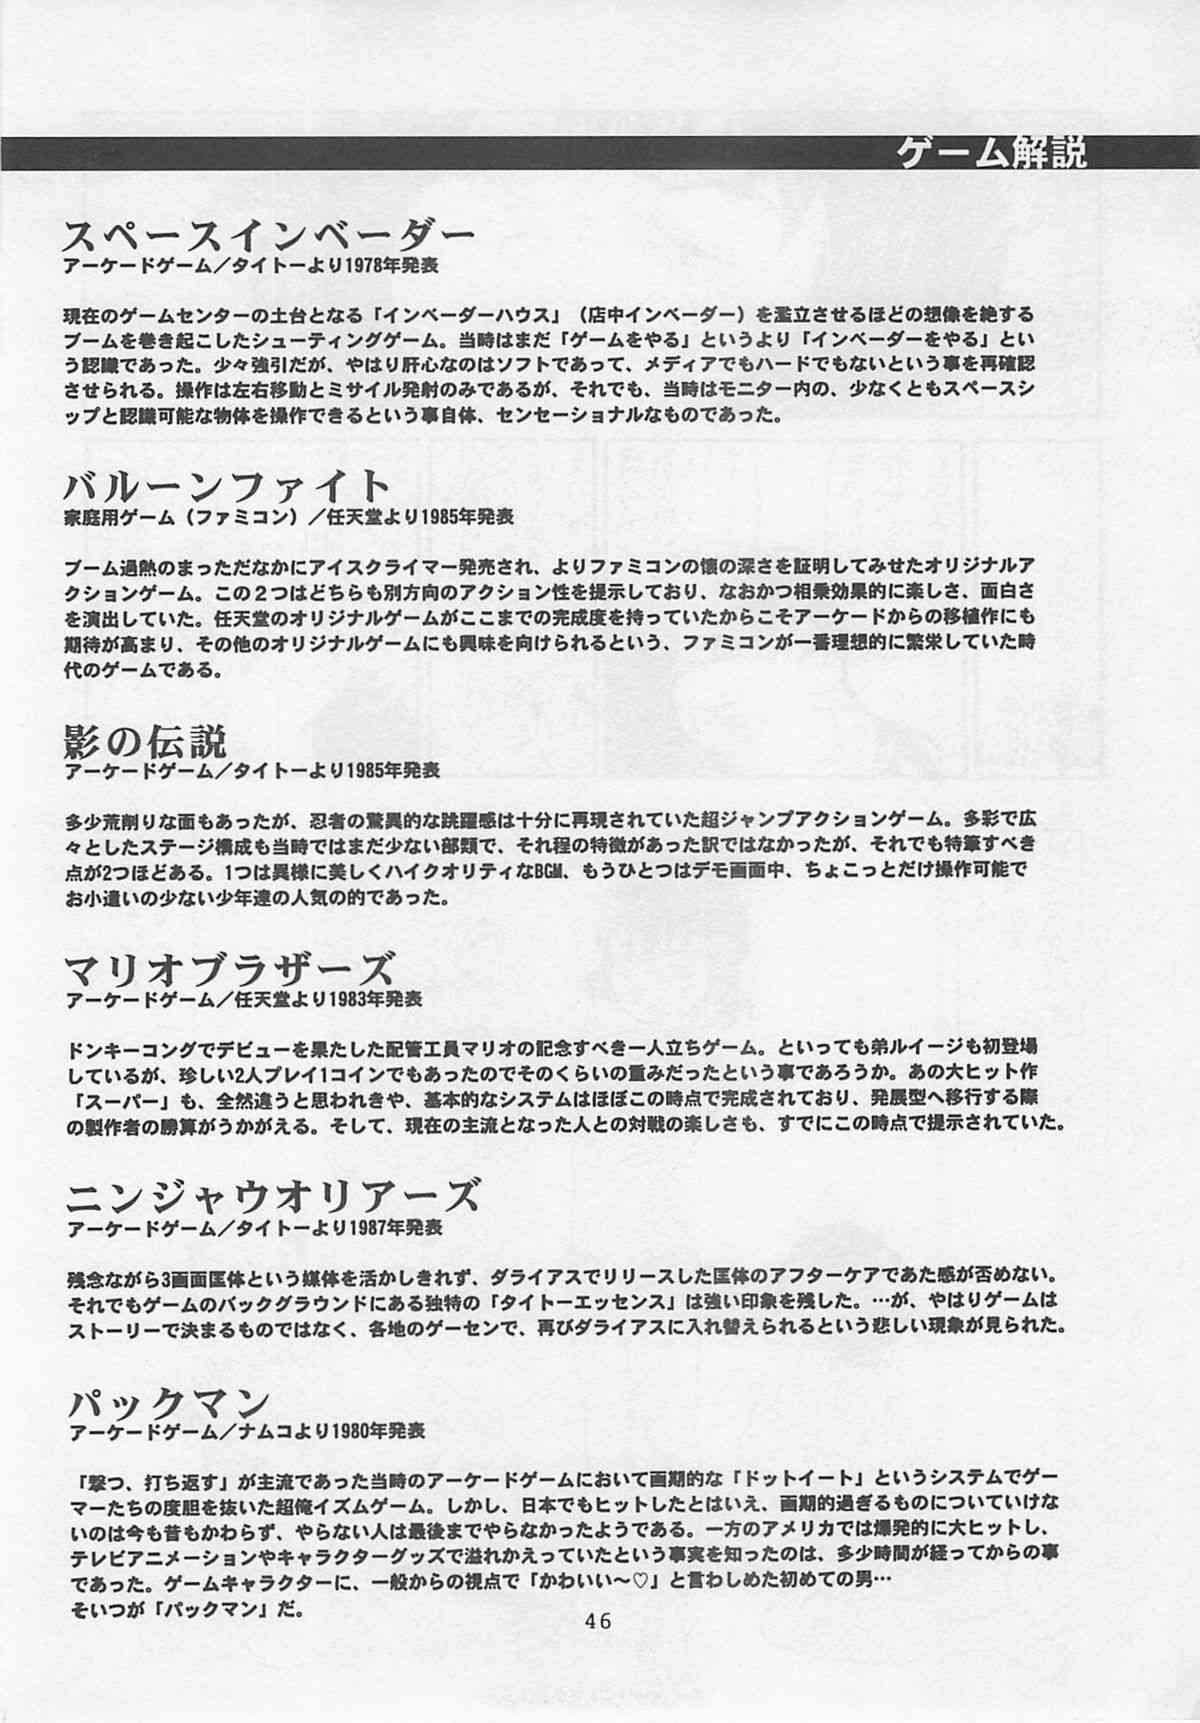 ゲーム解説
スペースインベーダー
アーケードゲーム／タイトーより1978年発表
現在のゲームセンターの土台となる「インベーダーハウス」（店中インベーダー）を濫立させるほどの想像を絶する
ブームを巻き起こしたシューティングゲーム。当時はまだ「ゲームをやる」というより「インベーダーをやる」とい
う認識であった。少々強引だが、やはり肝心なのはソフトであって、メディアでもハードでもないという事を再確認
させられる。操作は左右移動とミサイル発射のみであるが、それでも、当時はモニター内の、少なくともスペースシ
ップと認識可能な物体を操作できるという事自体、センセーショナルなものであった。
バルーンファイト
家庭用ゲーム（ファミコン）／任天堂より1985年発表
ブーム過熱のまっただなかにアイスクライマー発売され、よりファミコンの懐の深さを証明してみせたオリジナルア
クションゲーム。この２つはどちらも別方向のアクション性を提示しており、なおかつ相乗効果的に楽しさ、面白さ
を演出していた。任天堂のオリジナルゲームがここまでの完成度を持っていたからこそアーケードからの移植作にも
期待が高まり、その他のオリジナルゲームにも興味を向けられるという、ファミコンが一番理想的に繁栄していた時
代のゲームである。
影の伝説
アーケードゲーム／タイトーより1985年発表
多少荒削りな面もあったが、忍者の驚異的な跳躍感は十分に再現されていた超ジャンプアクションゲーム。多彩で広
々としたステージ構成も当時ではまだ少ない部類で、それ程の特徴があった訳ではなかったが、それでも特筆すべき
点が2つほどある。1つは異様に美しくハイクオリティなBGM、もうひとつはデモ画面中、ちょこっとだけ操作可能で
お小遣いの少ない少年達の人気の的であった。
マリオブラザーズ
アーケードゲーム／任天堂より1983年発表
ドンキーコングでデビューを果たした配管工員マリオの記念すべき一人立ちゲーム。といっても弟ルイージも初登場
しているが、珍しい2人プレイ1コインでもあったのでそのくらいの重みだったという事であろうか。あの大ヒット作
「スーパー」も、全然違うと思われきや、基本的なシステムはほぼこの時点で完成されており、発展型へ移行する際
の製作者の勝算がうかがえる。そして、現在の主流となった人との対戦の楽しさも、すでにこの時点で提示されていた。
ニンジャウオリアーズ
アーケードゲーム／タイトーより1987年発表
残念ながら3画面匡体という媒体を活かしきれず、ダライアスでリリースした匡体のアフターケアであた感が否めない。
それでもゲームのバックグラウンドにある独特の「タイトーエッセンス」は強い印象を残した。…が、やはりゲームは
ストーリーで決まるものではなく、各地のゲーセンで、再びダライアスに入れ替えられるという悲しい現象が見られた。
パックマン
アーケードゲーム／ナムコより1980年発表
「撃つ、打ち返す」が主流であった当時のアーケードゲームにおいて画期的な「ドットイート」というシステムでゲー
マーたちの度胆を抜いた超俺イズムゲーム。しかし、日本でもヒットしたとはいえ、画期的過ぎるものについていけな
いのは今も昔もかわらず、やらない人は最後までやらなかったようである。一方のアメリカでは爆発的に大ヒットし、
テレビアニメーションやキャラクターグッズで溢れかえっていたという事実を知ったのは、多少時間が経ってからの事
であった。ゲームキャラクターに、一般からの視点で「かわいい～♡」と言わしめた初めての男…
そいつが「パックマン」だ。
46